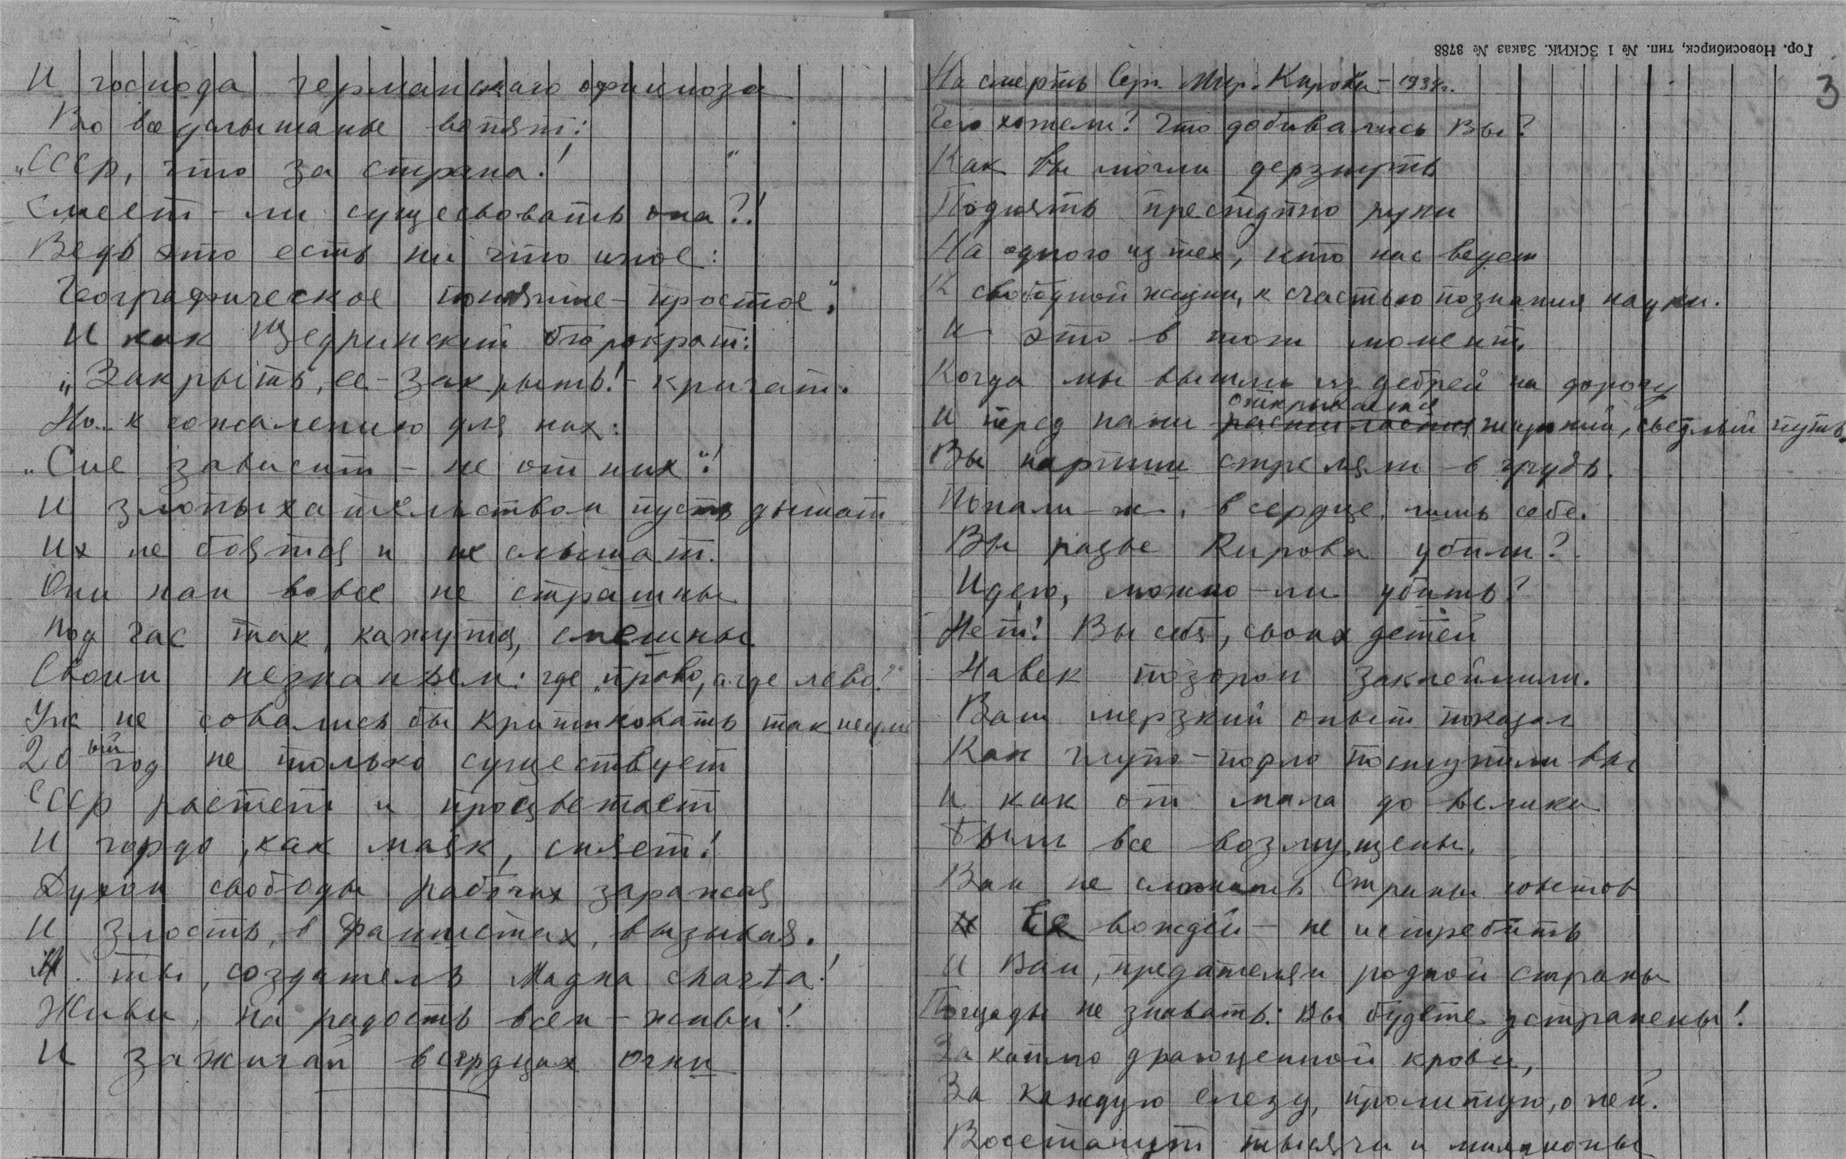 И господа германского официоза
Во всеуслышанье вопят:
„СССР, что за страна!
Смеет-ли существовать она?!"
Ведь это есть ни что иное:
Географическое понятие - простое".
И как Щедринский бюрократ:
„Закрыть, ее - закрыть! - кричат.
Но.. к сожалению для них:
„Сие зависит - не от них"!
И злопыхательством пусть дышат
Их не боятся и не слышат.
Они нам вовсе не страшны
Под час так, кажутся, смешны
Своим незнаньем: где „право, а где лево?"
Уж не совались бы критиковать так
20ый год не только существует
СССР растет и процветает
И гордо, как маяк, сияет!
Духом свободы рабочих заражая
И злость, в фашистах, вызывая.
И ты, создатель Мадна charta!
Живи, на радость всем - живи!
И зажигай в сердцах огни
Гор. Новосибирск, тип. № 1 ЗСКИК. Заказ № 8788
3
На смерть Серг. Мир. Кирова - 1934г.
Чего хотели? Что добивались Вы?
Как Вы могли дерзнуть
Поднять преступно руки
На одного из тех, кто нас ведет
К свободной жизни, к счастью познания науки.
И это в тот момент,
Когда мы вышли из дебрей на дорогу
И перед нами открывался широкий, светлый путь
Вы партии стреляли в грудь.
Попали-ж, в сердце, лишь себе.
Вы разве Кирова убили?
Идею, можно-ли убить?
Нет! Вы себя, своих детей
Навек позором заклеймили.
Ваш мерзкий опыт показал
Как глупо-подло поступили вы
И как от мала до велика
Были все возмущены.
Вам не сломить Страны советов
Ее вождей - не истребить
И Вам, предателям родной страны
Пощады не знавать: Вы будете устранены!
За каплю драгоценной крови,
За каждую слезу, пролитую, о ней.
Восстанут тысячи и миллионы